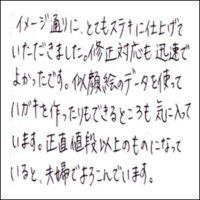 イメージ通りに、とてもステキに仕上げて
いただきました。修正対応も迅速で
よかったです。似顔絵のデータを使って
ハガキを作ったりもできるところも気に入って
います。正直値段以上のものになって
いると、夫婦でよろこんでいます。